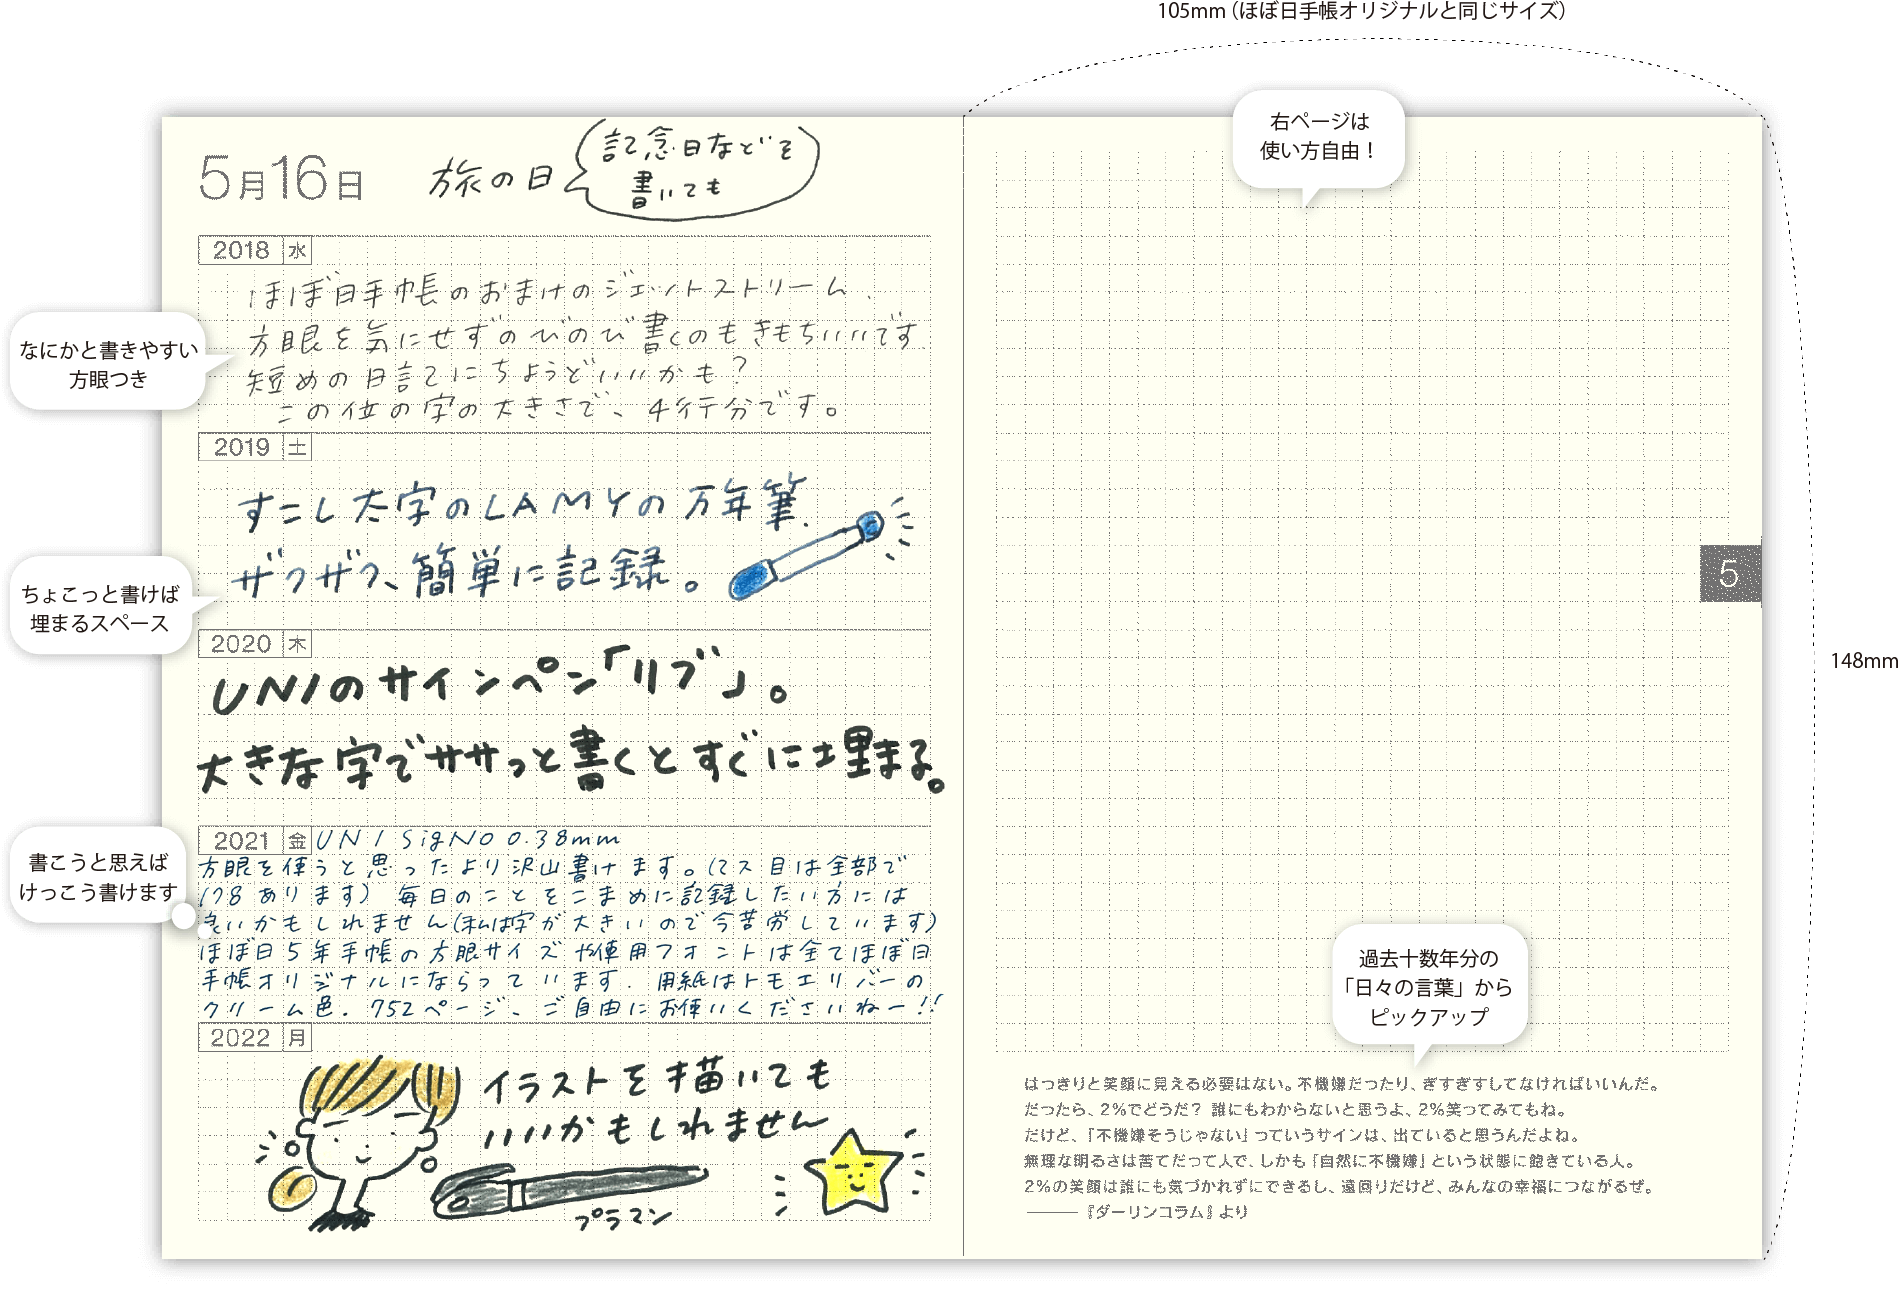 105mm（ほぼ日手帳オリジナルと同じサイズ）
148mm
5月16日
旅の日
記念日などを
書いても
2018 水
ほぼ日手帳のおまけのジェットストリーム.
方眼を気にせずのびのび書くのもきもちいいです.
短めの日記にちょうどいいかも?
この位の字の大きさで、4行分です。
なにかと書きやすい
方眼つき
2019 土
すこし太字のLAMYの万年筆.
ザクザク、簡単に記録。
ちょこっと書けば
埋まるスペース
2020 木
UNIのサインペン「リブ」。
大きな字でササっと書くとすぐに埋まる。
2021 金 UNI SigNO 0.38mm
方眼を使うと思ったより沢山書けます。(マス目は全部で
178あります) 毎日のことをこまめに記録したい方には
良いかもしれません(私は字が大きいので今苦労しています)
ほぼ日5年手帳の方眼サイズや使用フォントは全てほぼ日
手帳オリジナルにならっています. 用紙はトモエリバーの
クリーム色. 752ページ、ご自由にお使いくださいねー!!
書こうと思えば
けっこう書けます
2022 月
イラストを描いても
いいかもしれません
プラマン
右ページは
使い方自由！
5
過去十数年分の
「日々の言葉」から
ピックアップ
はっきりと笑顔に見える必要はない。不機嫌だったり、ぎすぎすしてなければいいんだ。
だったら、2%でどうだ？ 誰にもわからないと思うよ、2%笑ってみてもね。
だけど、『不機嫌そうじゃない』っていうサインは、出ていると思うんだよね。
無理な明るさは苦手だって人で、しかも「自然に不機嫌」という状態に飽きている人。
2%の笑顔は誰にも気づかれずにできるし、遠回りだけど、みんなの幸福につながるぜ。
───『ダーリンコラム』より